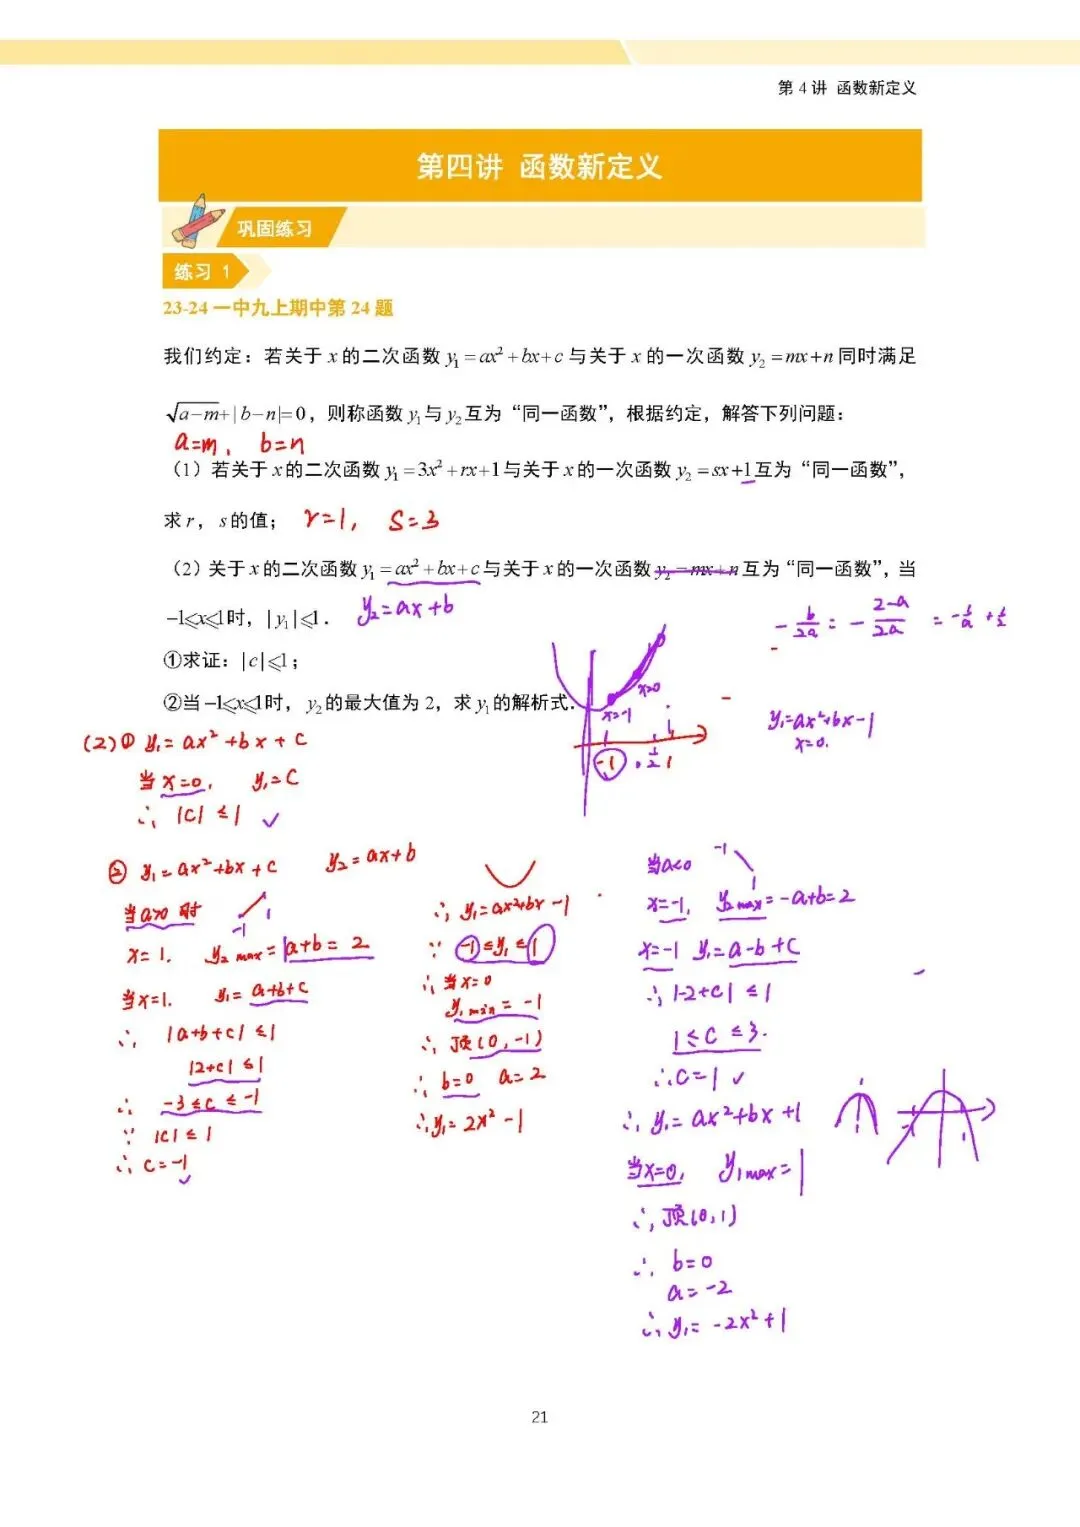 第 4 讲 函数新定义
第四讲 函数新定义
巩固练习
练习 1
23-24 一中九上期中第 24 题
我们约定：若关于 x 的二次函数 y₁ = ax² + bx + c 与关于 x 的一次函数 y₂ = mx + n 同时满足
√a−m + | b−n | = 0，则称函数 y₁ 与 y₂ 互为“同一函数”，根据约定，解答下列问题：
a=m， b=n
（1）若关于 x 的二次函数 y₁ = 3x² + rx + 1 与关于 x 的一次函数 y₂ = sx + 1 互为“同一函数”，
求 r，s 的值； r=1, S=3
（2）关于 x 的二次函数 y₁ = ax² + bx + c 与关于 x 的一次函数 y₂ = mx + n 互为“同一函数”，当
−1⩽x⩽1 时，| y₁ |⩽1． y₂=ax+b
-b/2a = -2-a/2a = -1/a + 1/2
①求证：| c |⩽1；
②当 −1⩽x⩽1 时，y₂ 的最大值为 2，求 y₁ 的解析式．
x=0
x=-1
-1 1/2 1
y₁=ax²+bx-1
x=0.
(2)① y₁= ax²+bx+c
当 x=0, y₁=c
∴ |c| ≤ 1 ✓
② y₁=ax²+bx+c y₂=ax+b
当a>0 时
-1 1
x=1. y₂ max = a+b = 2
当x=1. y₁= a+b+c
∴ |a+b+c| ≤ 1
|2+c| ≤ 1
∴ -3 ≤ c ≤ -1
∵ |c| ≤ 1
∴ c=-1 ✓
∴ y₁=ax²+bx-1
∵ -1 ≤ y₁ ≤ 1
∴ 当x=0
y₁ min = -1
∴ 顶(0,-1)
∴ b=0 a=2
∴ y₁= 2x²-1
当a<0 -1 1
x=-1, y₂ max = -a+b=2
x=-1 y₁=a-b+c
∴ |-2+c| ≤ 1
1 ≤ c ≤ 3.
∴ c=1 ✓
∴ y₁= ax²+bx+1
当x=0, y₁ max= 1
∴ 顶(0,1)
∴ b=0
a=-2
∴ y₁= -2x²+1
21